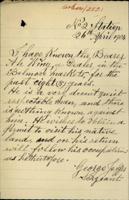 No 2 Station
26th April 1904
I have known the Bearer
Ah Wing, a Dealer in the
Belmore markets for the
past eight (8) years.
He is a very decent quiet
respectable man, and there
is nothing known against
him. He wishes to obtain a
permit to visit his native
land, and on his return
will follow his occupation
as heretofore.
George
Sergeant